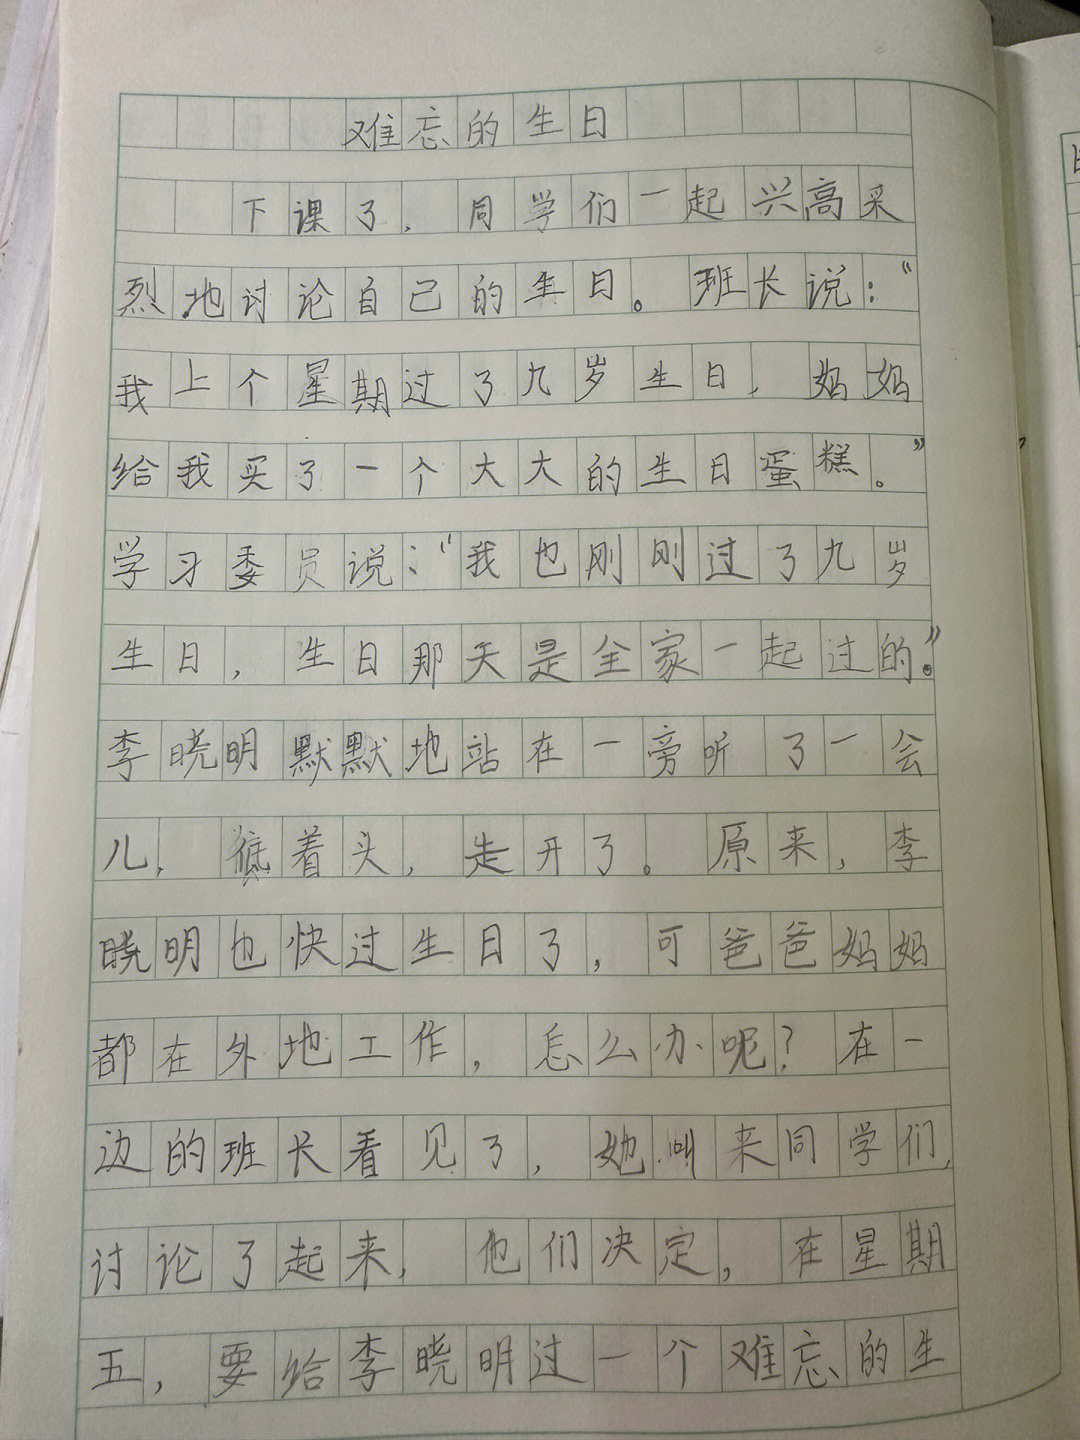 难忘的生日
下课了，同学们一起兴高采
烈地讨论自己的生日。班长说：“
我上个星期过了九岁生日，妈妈
给我买了一个大大的生日蛋糕。”
学习委员说：“我也刚刚过了九岁
生日，生日那天是全家一起过的。”
李晓明默默地站在一旁听了一会
儿，低着头，走开了。原来，李
晓明也快过生日了，可爸爸妈妈
都在外地工作，怎么办呢？在一
边的班长看见了，她叫来同学们，
讨论了起来，他们决定，在星期
五，要给李晓明过一个难忘的生